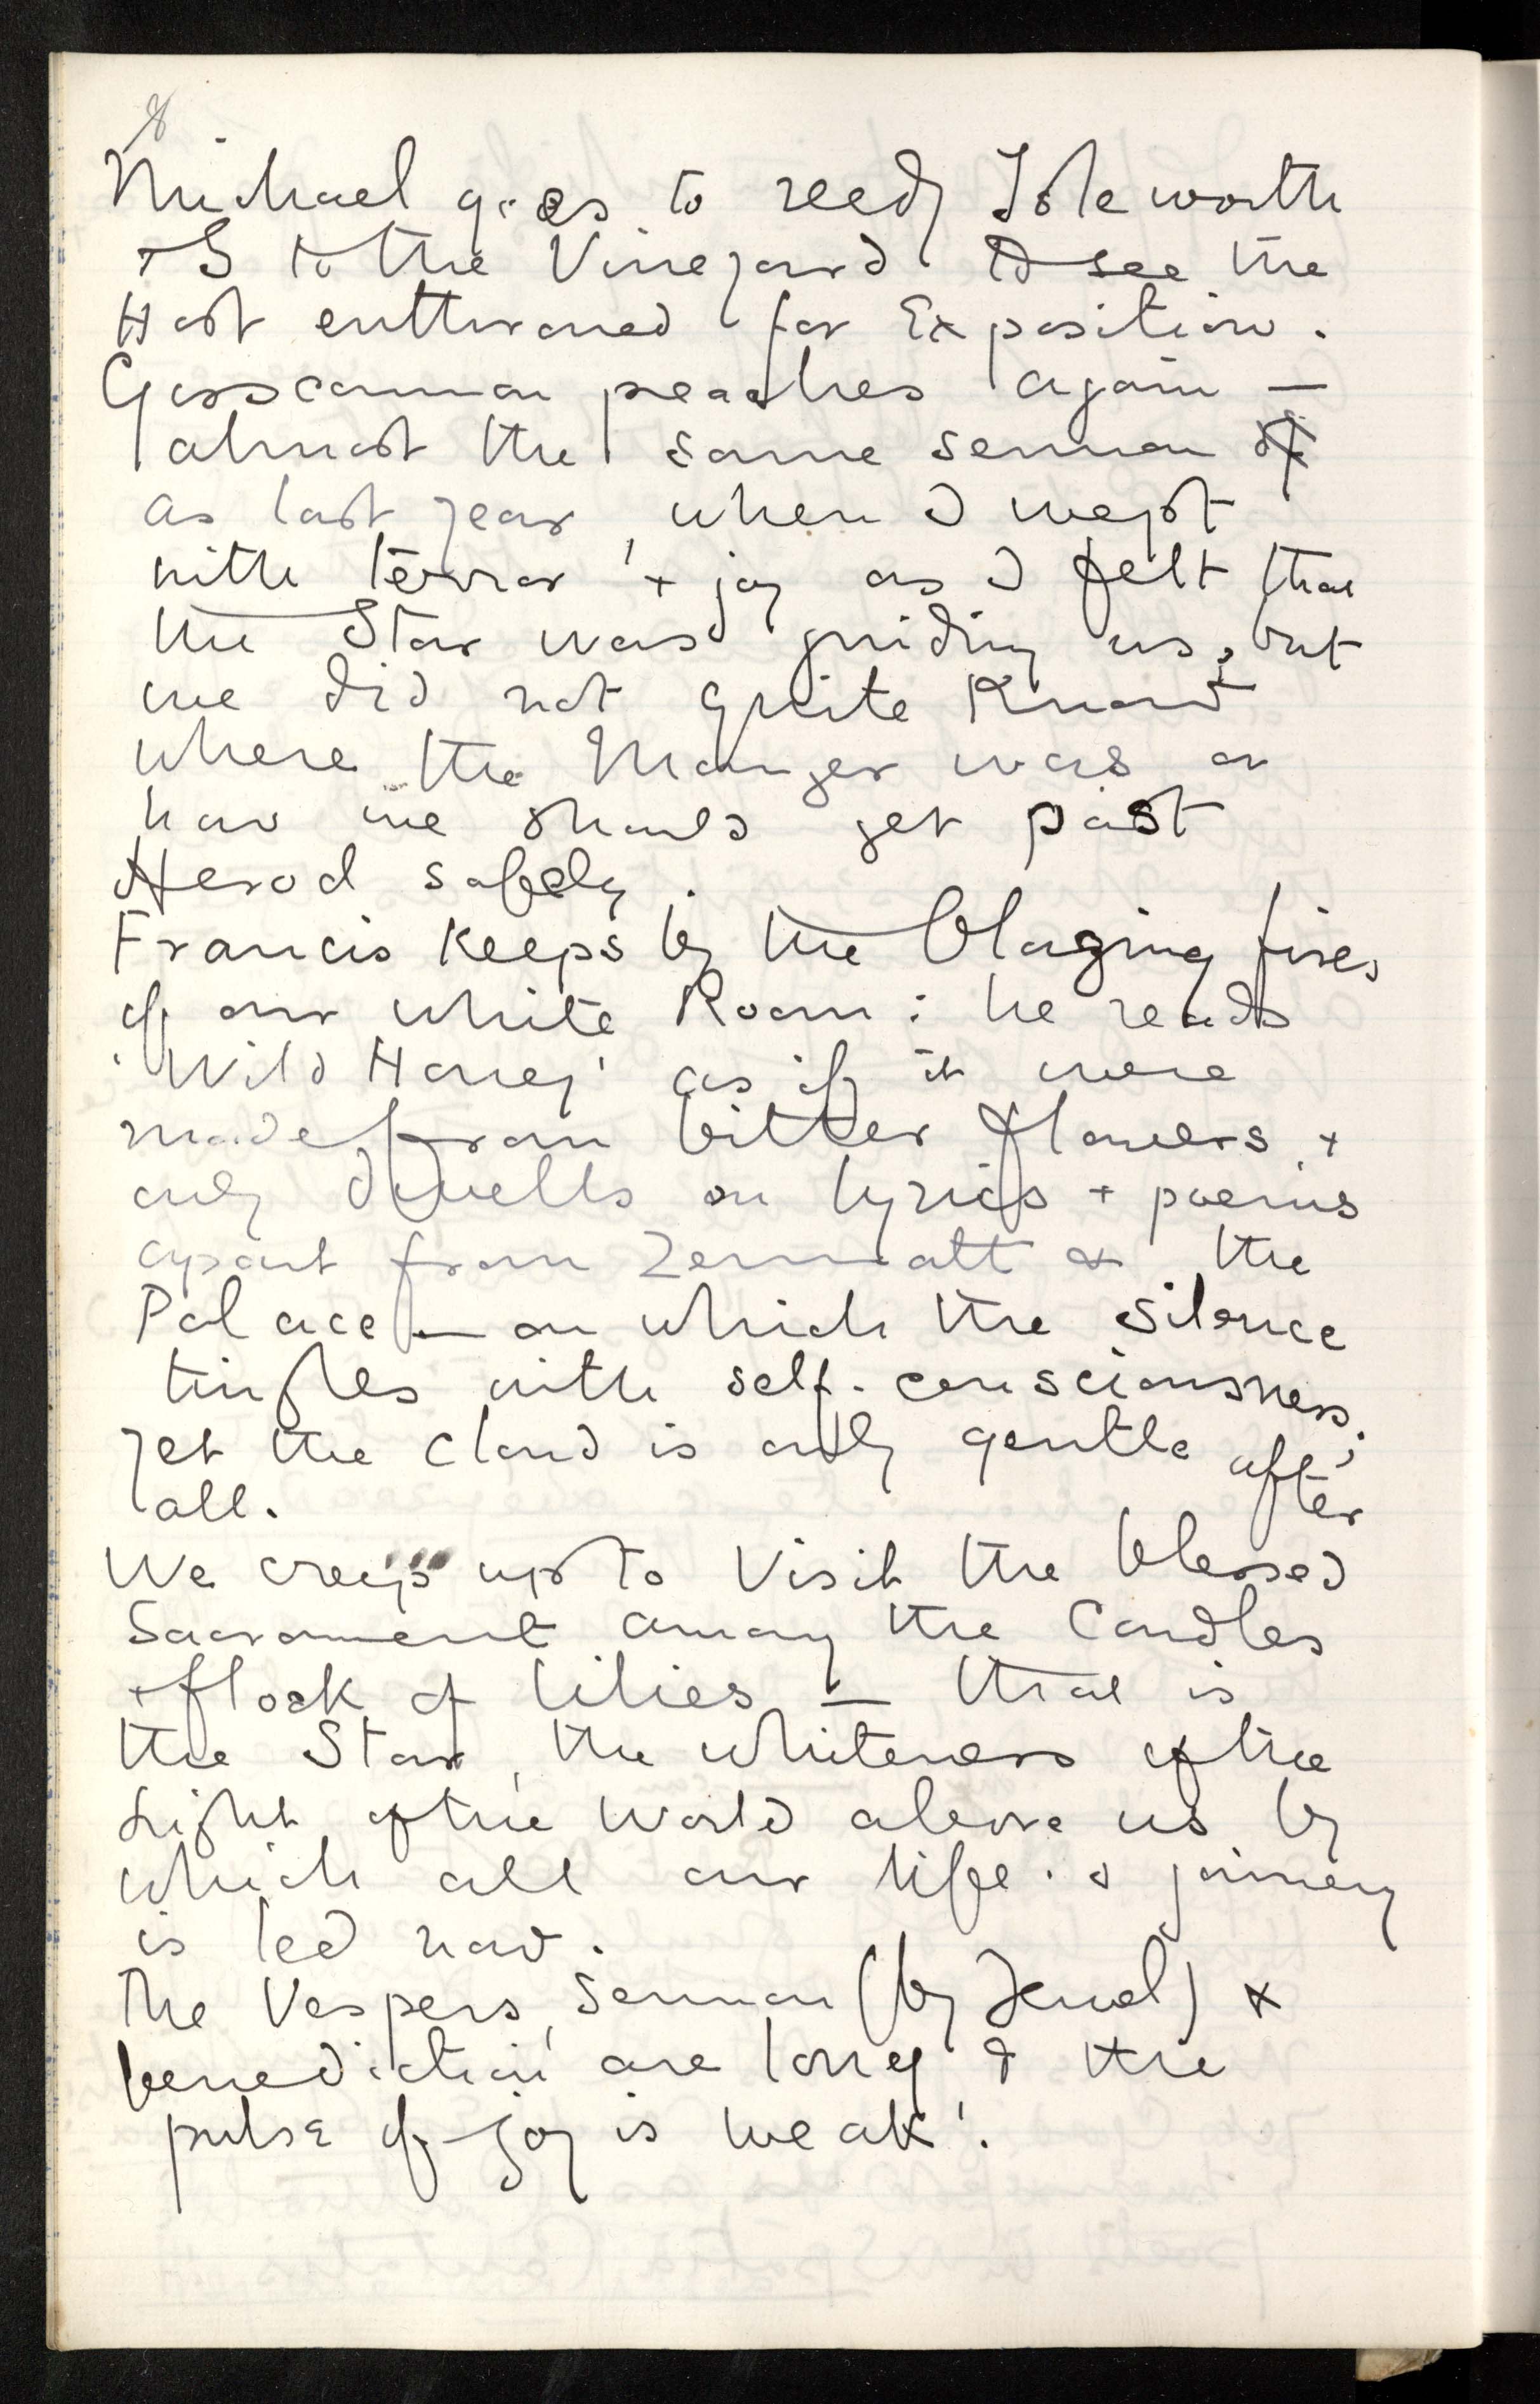 8
Michael goes to reedy Isleworth
+ I to the Vineyard to see the
Host enthroned for Exposition.
Gosscannon preaches again —
almost the same sermon
as last year, when I wept
with terror + joy as I felt that
the Star was guiding us, but
we did not quite know
where the Manger was or
how we should get past
Herod safely.
Francis keeps by the blazing fires
of our white Room: he reads
'Wild Honey' as if it were
made from bitter flowers +
only dwells on lyrics + poems
apart from Zermatt & the
Palace — on which the silence
tingles with self-consciousness;
yet the cloud is only gentle after
all.
We creep up to Visit the blessed
Sacrament among the Candles
+ flock of lilies — that is
the Star, the whiteness of the
Light of the World above us by
which all our life & journey
is led now.
The Vespers, Sermon (by Jewel) &
benediction are long & the
pulse of joy is weak!